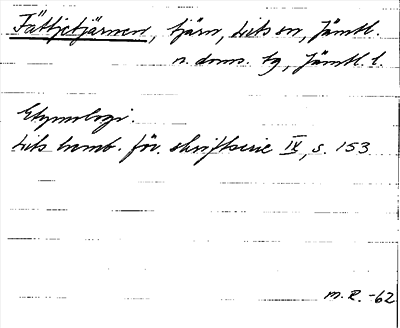 Fättjetjärnen, tjärn, Lits sn, Jämtl.
n. doms. tg, Jämtl. l.
Etymologi.
Lits hemb. för. skriftserie IV, s. 153
M.R. -62